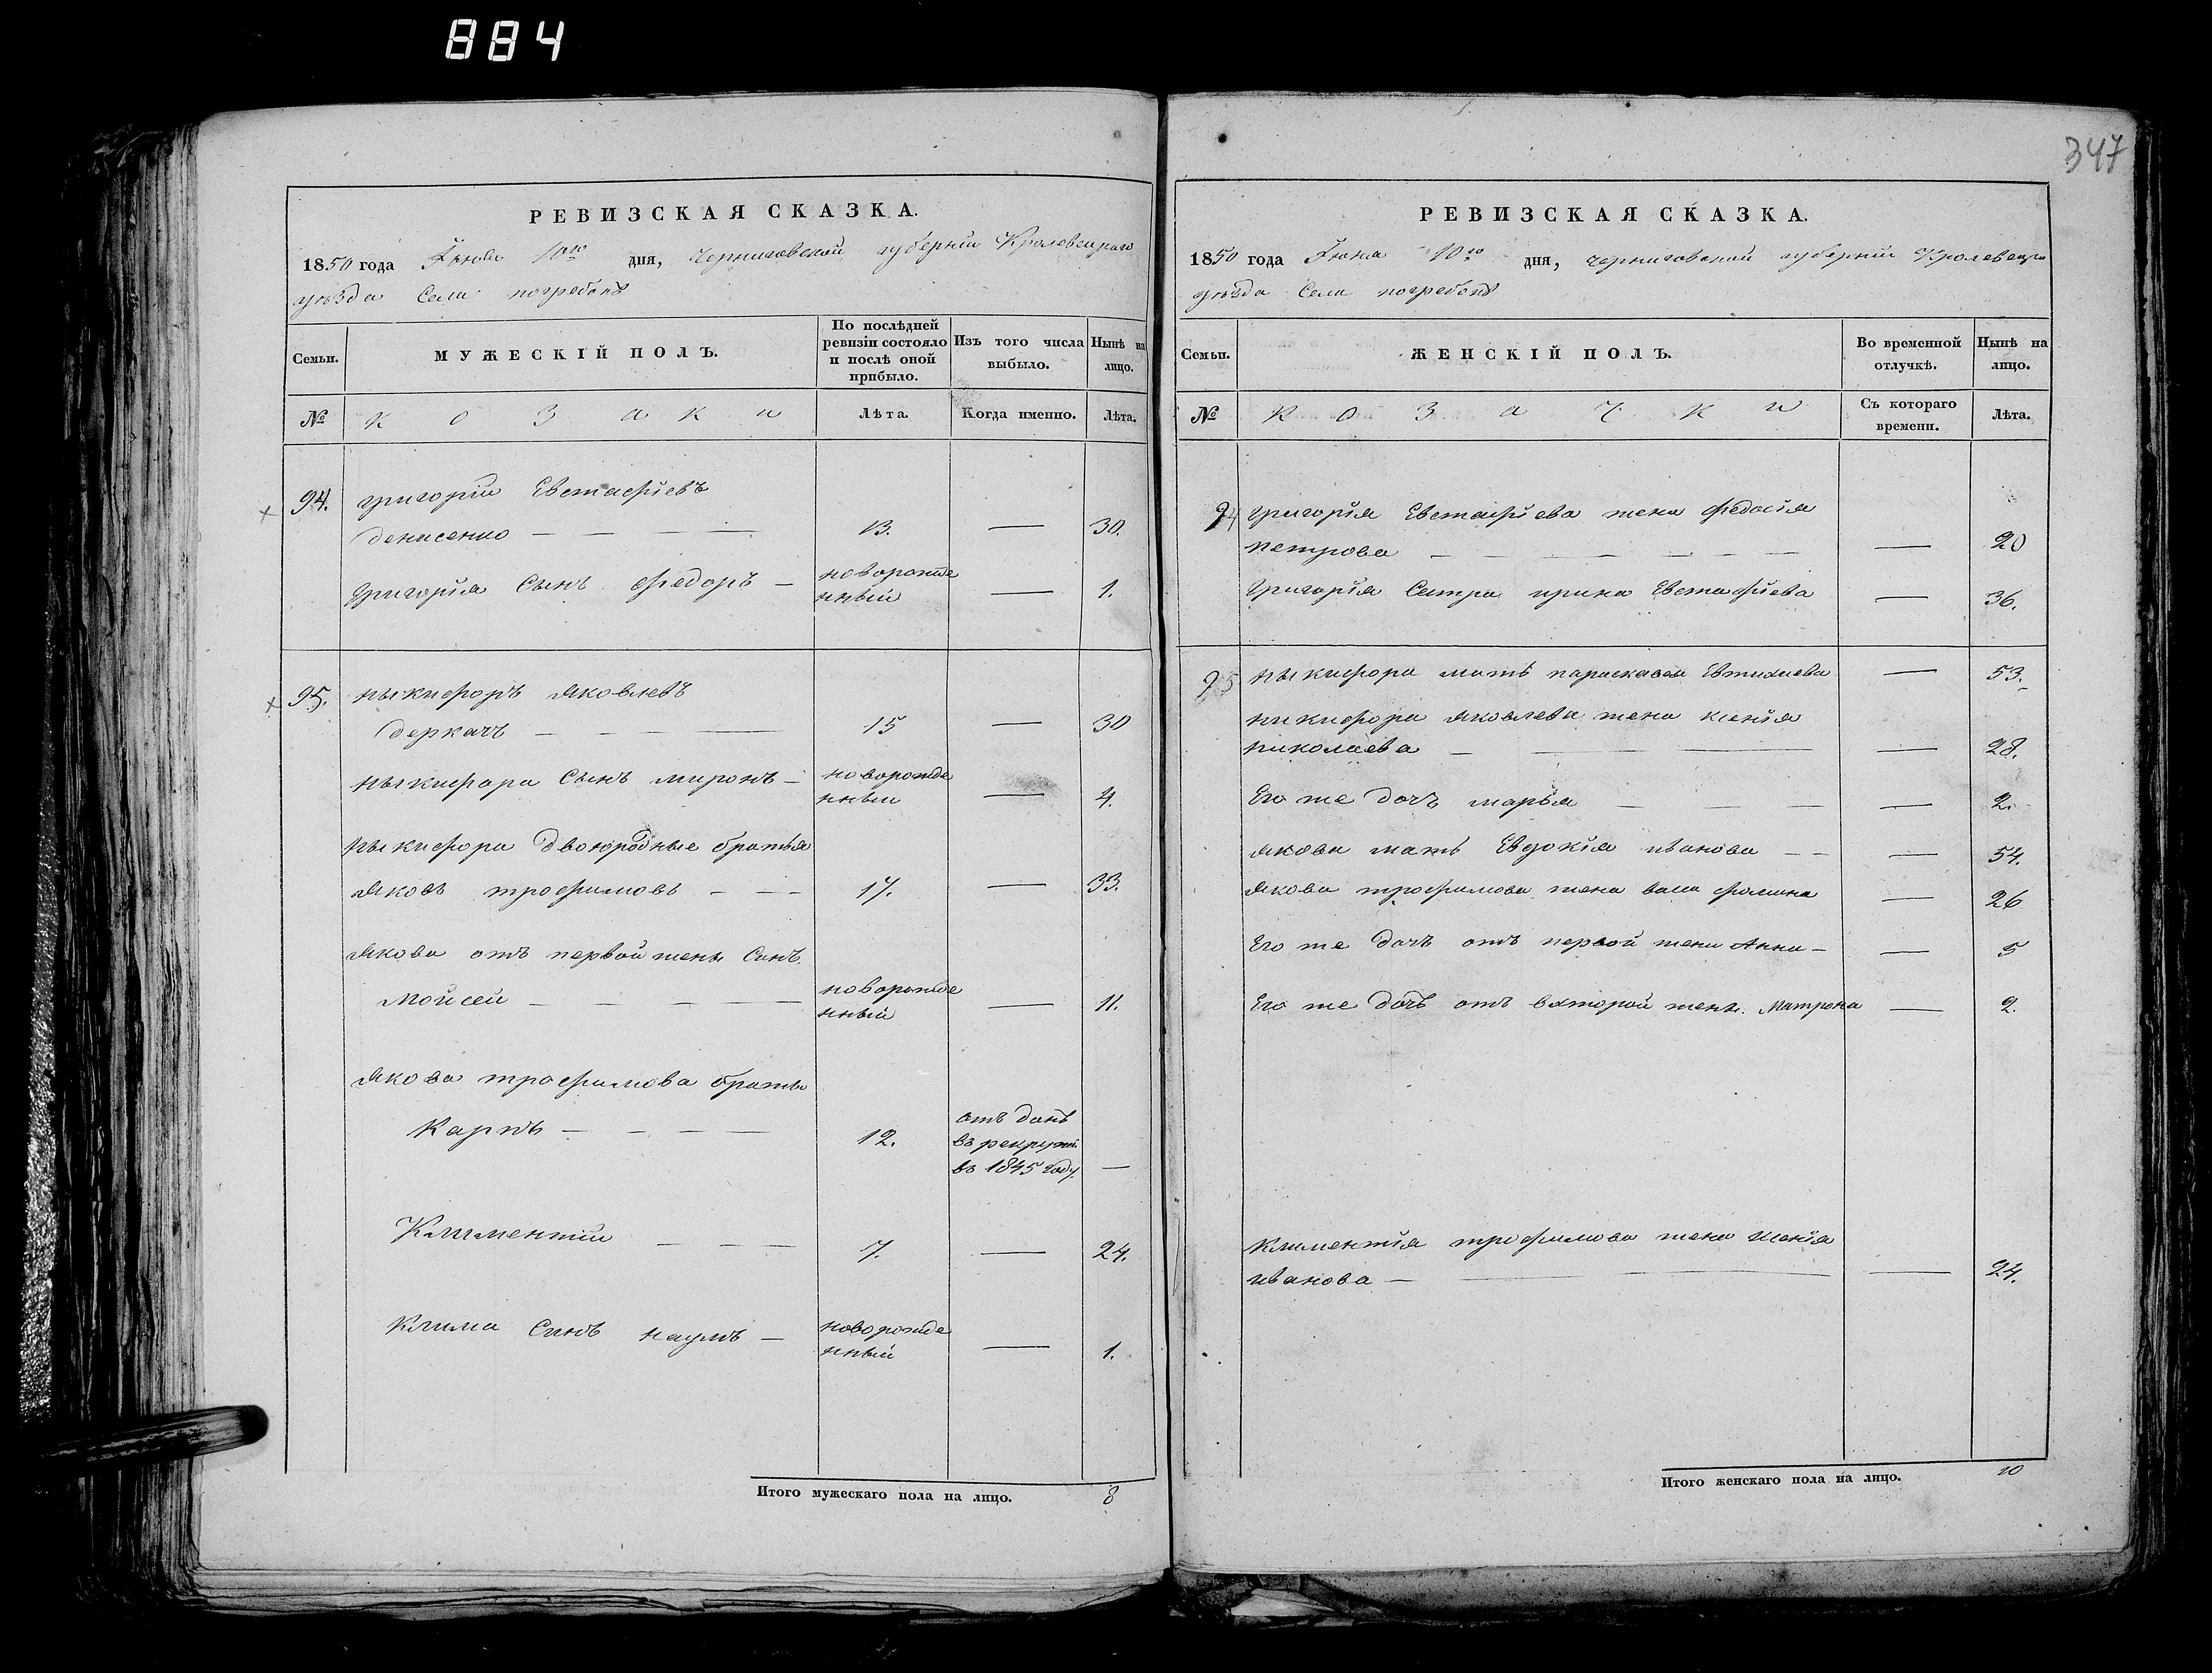 884
347
РЕВИЗСКАЯ СКАЗКА.
1850 года Іюня 10го дня, Черниговской губерніи Кролевецкаго
уезда Села погребокъ
Семьи.
МУЖЕСКІЙ ПОЛЪ.
По послѣдней ревизіи состояло и послѣ оной прибыло.
Изъ того числа выбыло.
Нынѣ на лицо.
№
козаки
Лѣта.
Когда именно.
Лѣта.
94. григорій Евстафіевъ
денисенко — — — — 13. — 30.
григорія Сынъ федоръ — новорожде
нный — 1.
95. ныкифоръ яковлевъ
деркачъ — — — — 15 — 30
ныкифора Сынъ миронъ — новорожде
нный — 4.
ныкифора двоюродные братья
яковъ трофимовъ — — — 17. — 33.
якова отъ первой жены Синъ
Мойсей — — — — новорожде
нный — 11.
якова трофимова браты
Карпъ — — — — 12. отъ данъ
въ рекруты
въ 1845 году. —
Климентій — — — 7. — 24.
Клима Синъ наумъ — новорожде
нный — 1.
Итого мужескаго пола на лицо. 8
РЕВИЗСКАЯ СКАЗКА.
1850 года Іюня 10го дня, черниговской губерніи Кролевецка
уезда Села погребокъ
Семьи.
ЖЕНСКІЙ ПОЛЪ.
Во временной отлучкѣ.
Нынѣ на лицо.
№
козачки
Съ котораго времени.
Лѣта.
94 григорія Евстафіева жена федосія
петрова — — — — — — — — 20
григорія Сестра ирина Евстафіева — 36.
95 ныкифора мать параскавея Евтихиева — 53.
никифора яковлева жена ксенія
николаева — — — — 28.
Его же дочъ марья — — — — 2.
якова мать Евдокія иванова — — — 54.
якова трофимова жена васа фомина — 26
Его же дочъ отъ первой жени Анна — — 5
Его же дочъ отъ второй жены. Матрона — 2.
климентія трофимова жена ксенія
иванова — — — — 24.
Итого женскаго пола на лицо. 10